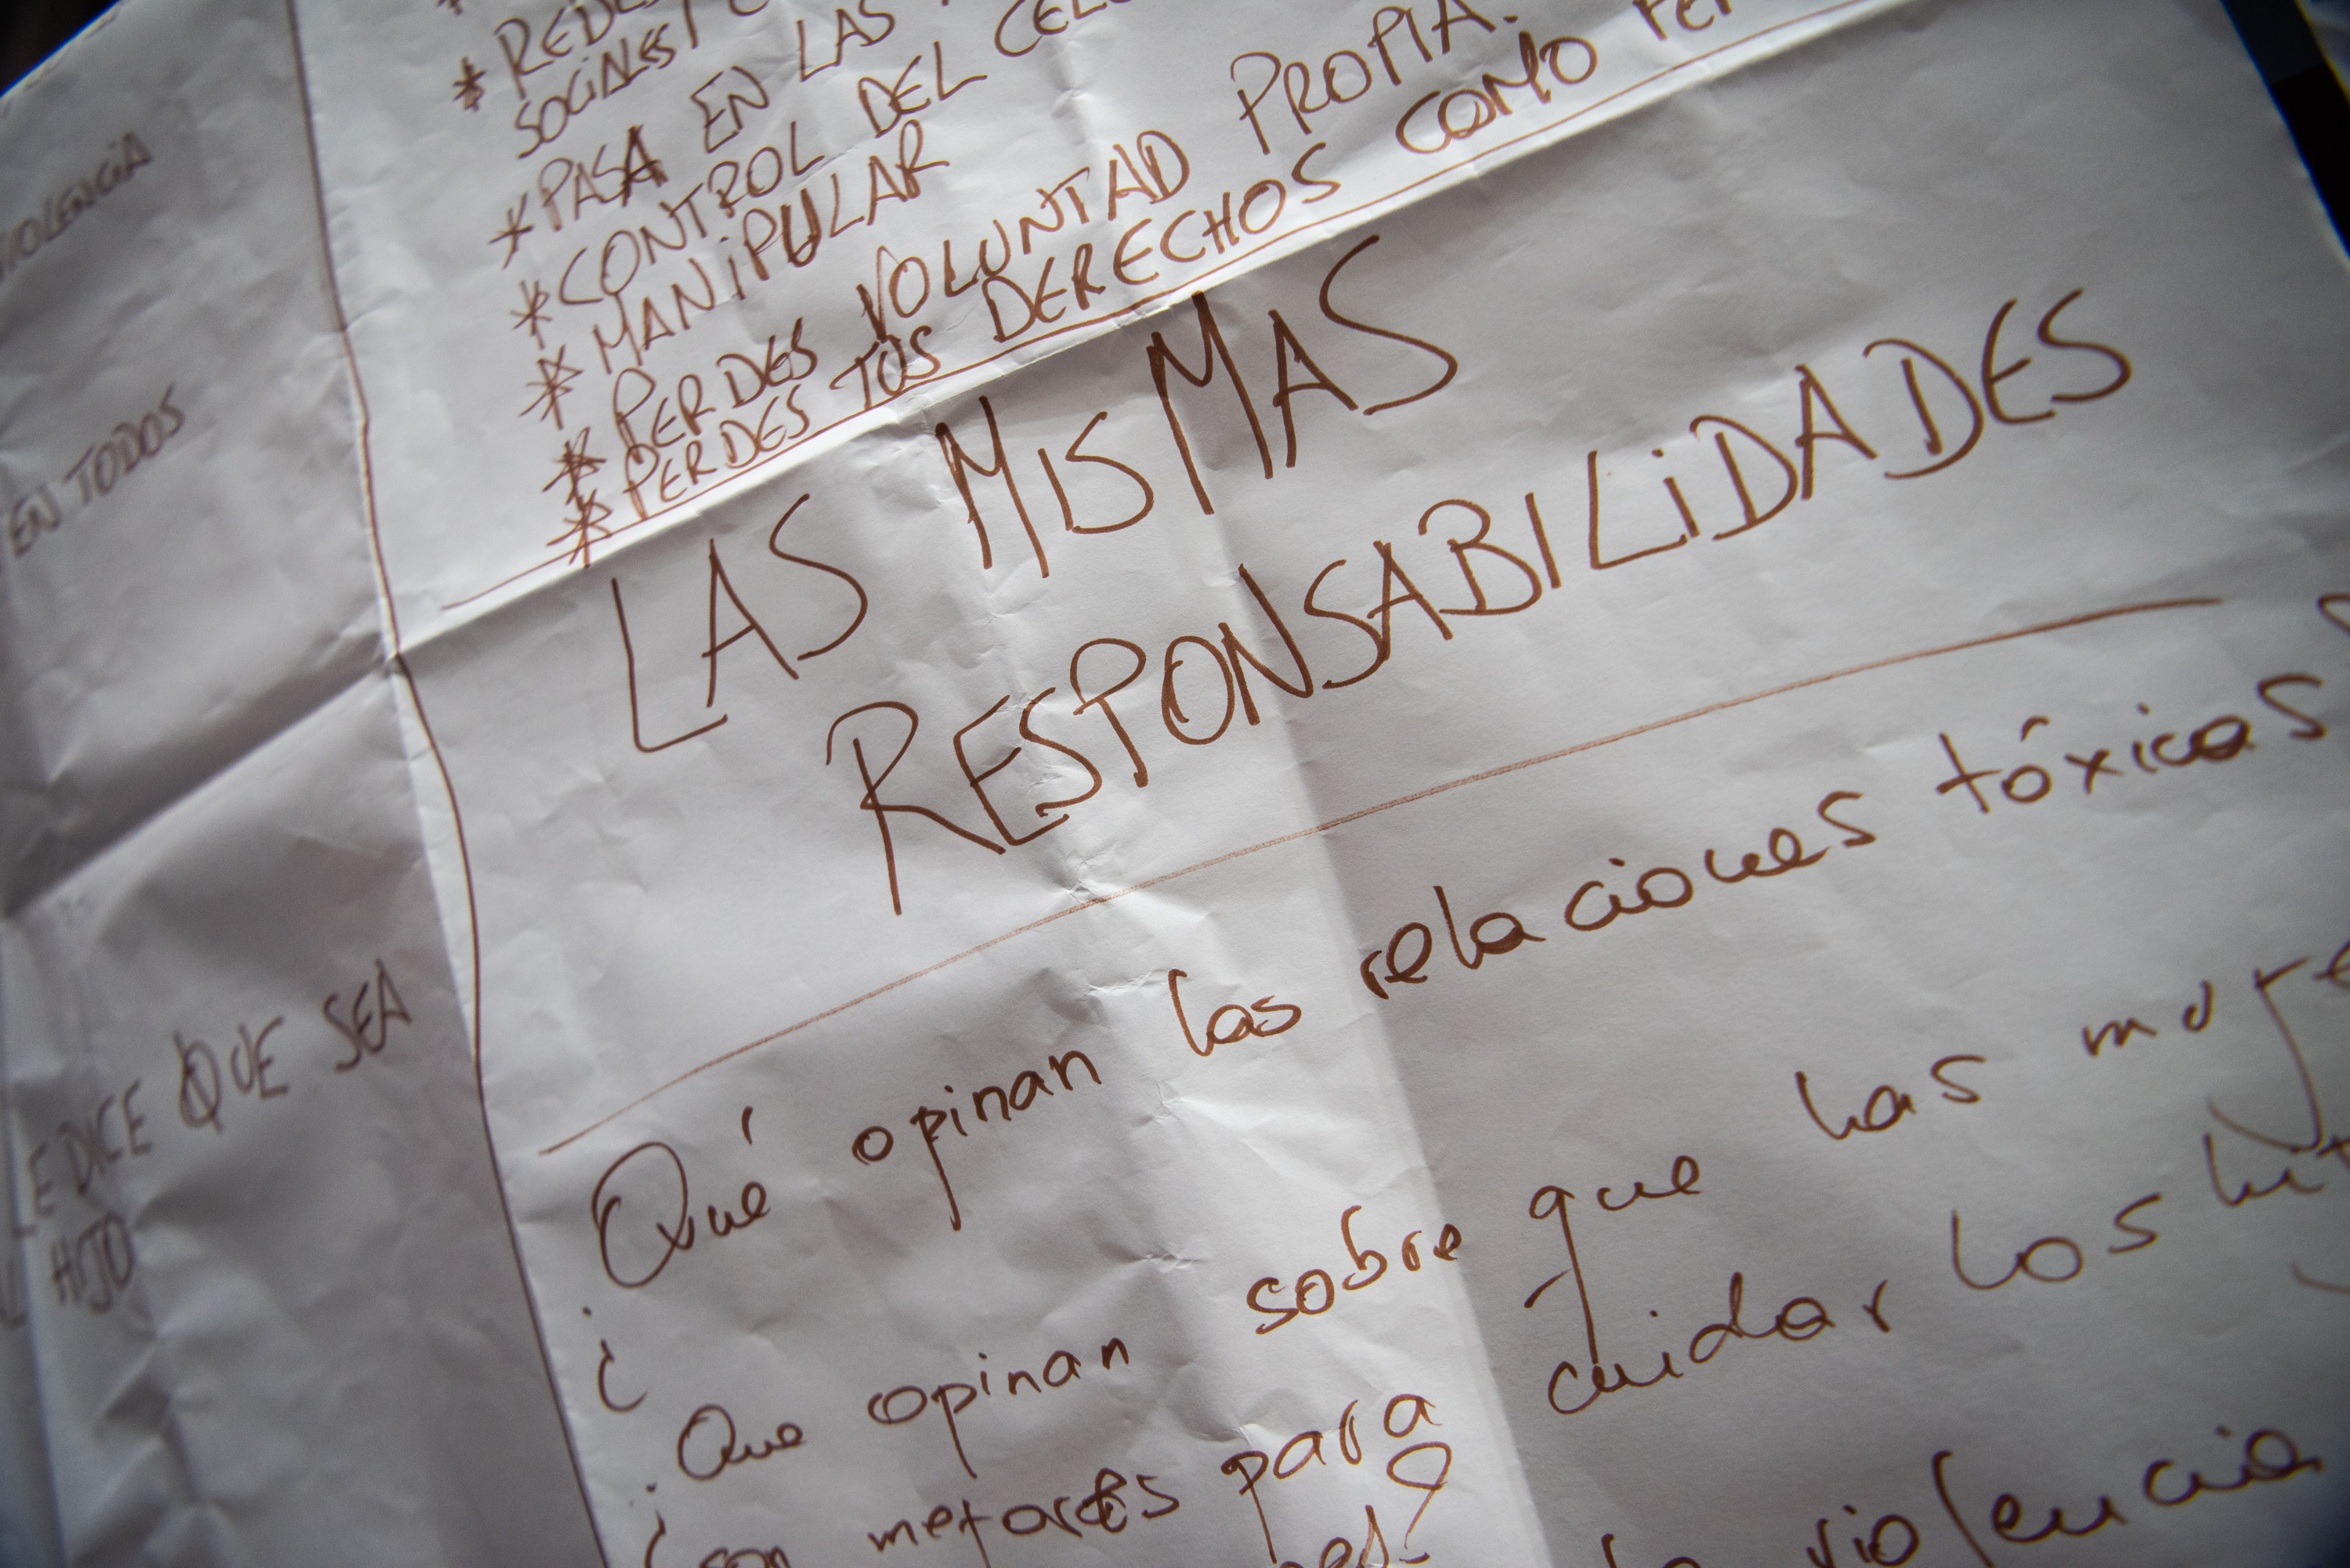 VIOLENCIA
EN TODOS
LE DICE QUE SEA
HIJO
*
* REDES
SOCIALES
* PASA EN LAS
* CONTROL DEL
* MANIPULAR
* PERDES VOLUNTAD PROPIA.
* PERDES TOS DERECHOS COMO
LAS MISMAS
RESPONSABILIDADES
¿Qué opinan las relaciones tóxicas
¿Que opinan sobre que las
son mejores para cuidar los
violencia